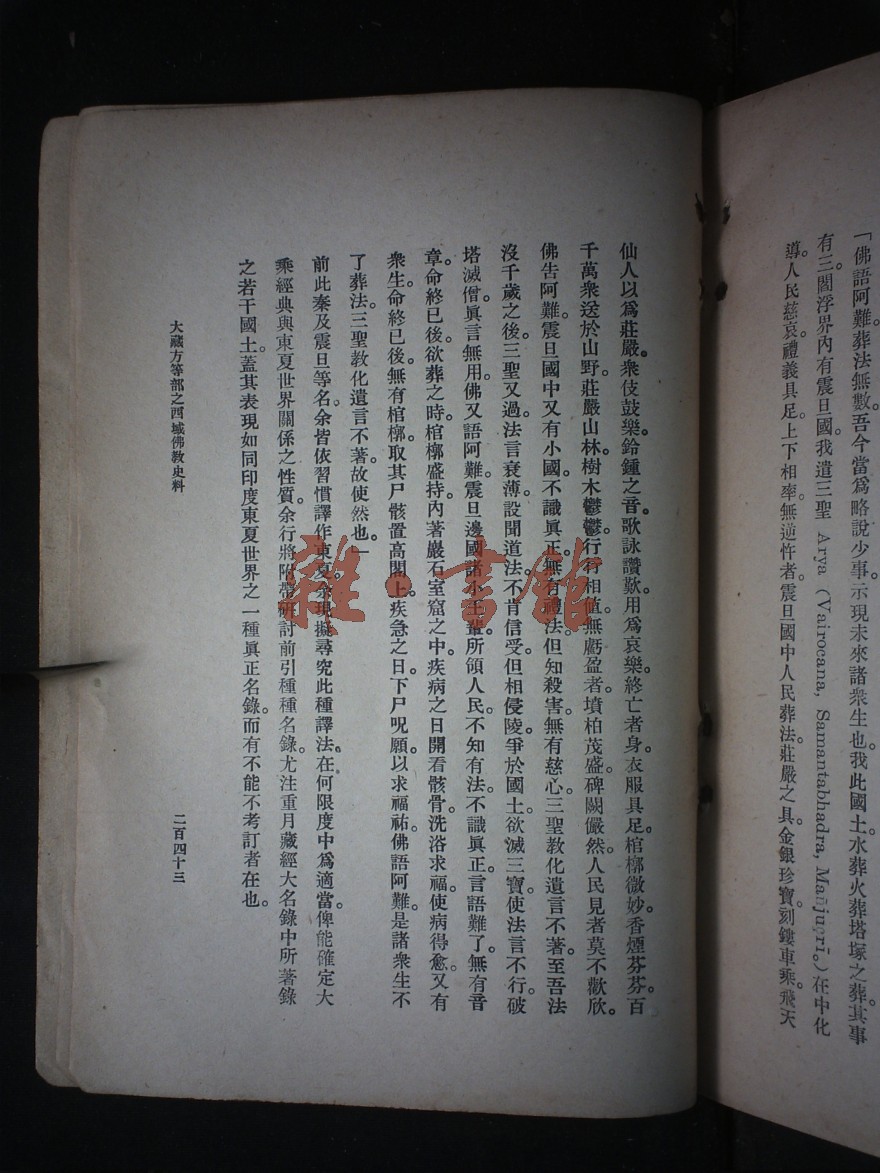 「佛語阿難。葬法無數。吾今當爲略說少事。示現未來諸衆生也。我此國土水葬火葬塔塚之葬。其事
有三。閻浮界內有震旦國。我遣三聖 Arya (Vairocana, Samantabhadra, Mañjuçrī。) 在中化
導。人民慈哀。禮義具足。上下相率。無逆忤者。震旦國中人民葬法莊嚴之具。金銀珍寶。刻鏤車乘。飛天
仙人以爲莊嚴。衆伎鼓樂。鈴鍾之音。歌詠讚歎。用爲哀樂。終亡者身。衣服具足。棺槨微妙。香煙芬芬。百
千萬衆送於山野。莊嚴山林。樹木鬱鬱。行行相值。無虧盈者。墳柏茂盛。碑闕儼然。人民見者。莫不歡欣。
佛告阿難。震旦國中又有小國。不識眞正。無有禮法。但知殺害。無有慈心。三聖教化。遺言不著。至吾法
沒千歲之後。三聖又過。法言衰薄。設聞道法。不肯信受。但相侵陵。爭於國土。欲滅三寶。使法言不行。破
塔滅僧。眞言無用。佛又語阿難。震旦邊國諸小王輩。所領人民。不知有法。不識眞正。言語難了。無有音
章。命終已後。欲葬之時。棺槨盛持。內著巖石室窟之中。疾病之日。開看骸骨。洗浴求福。使病得愈。又有
衆生命終已後。無有棺槨。取其尸骸。置高閣上。疾急之日。下尸呪願。以求福祐。佛語阿難。是諸衆生不
了葬法。三聖教化。遺言不著。故使然也。」
前此秦及震旦等名。余皆依習慣譯作東夏。余現擬尋究此種譯法。在何限度中爲適當。俾能確定大
乘經典與東夏世界關係之性質。余行將附帶研討前引種種名錄。尤注重月藏經大名錄中所著錄
之若干國土。蓋其表現如同印度東夏世界之一種眞正名錄。而有不能不考訂者在也。
大藏方等部之西域佛敎史料
二百四十三
雜·書館